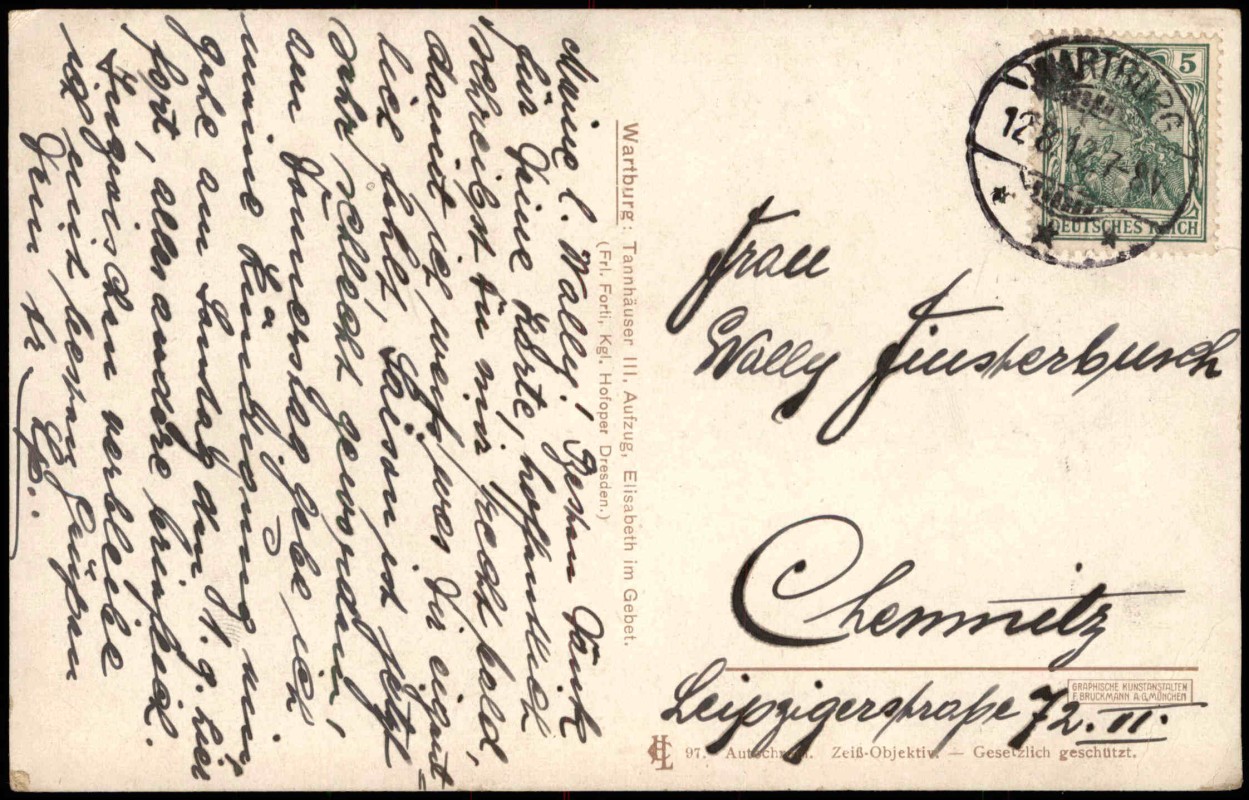 Meine l. Wally! Besten Dank
für Deine Karte, hoffentlich
schreibst Du mir recht bald,
damit ich weiß, was Dir eigent-
lich fehlt, Saison ist jetzt
sehr schlecht geworden,
am Donnerstag gebe ich
meine Kündigung ein
gehe am Sontag den hier
fort, alles andre brieflich.
Inzwischen verbleibe
ich mit besten Grüßen
Dein
Wartburg: Tannhäuser III. Aufzug, Elisabeth im Gebet.
(Frl. Forti, Kgl. Hofoper Dresden.)
WARTBURG
12.8.12.7-8V.
5
DEUTSCHES REICH
Frau
Wally Finsterbusch
Chemnitz
Leipzigerstraße 72. II.
GRAPHISCHE KUNSTANSTALTEN
F. BRUCKMANN A.G. MÜNCHEN
97. Autochrom. Zeiß-Objektiv. — Gesetzlich geschützt.